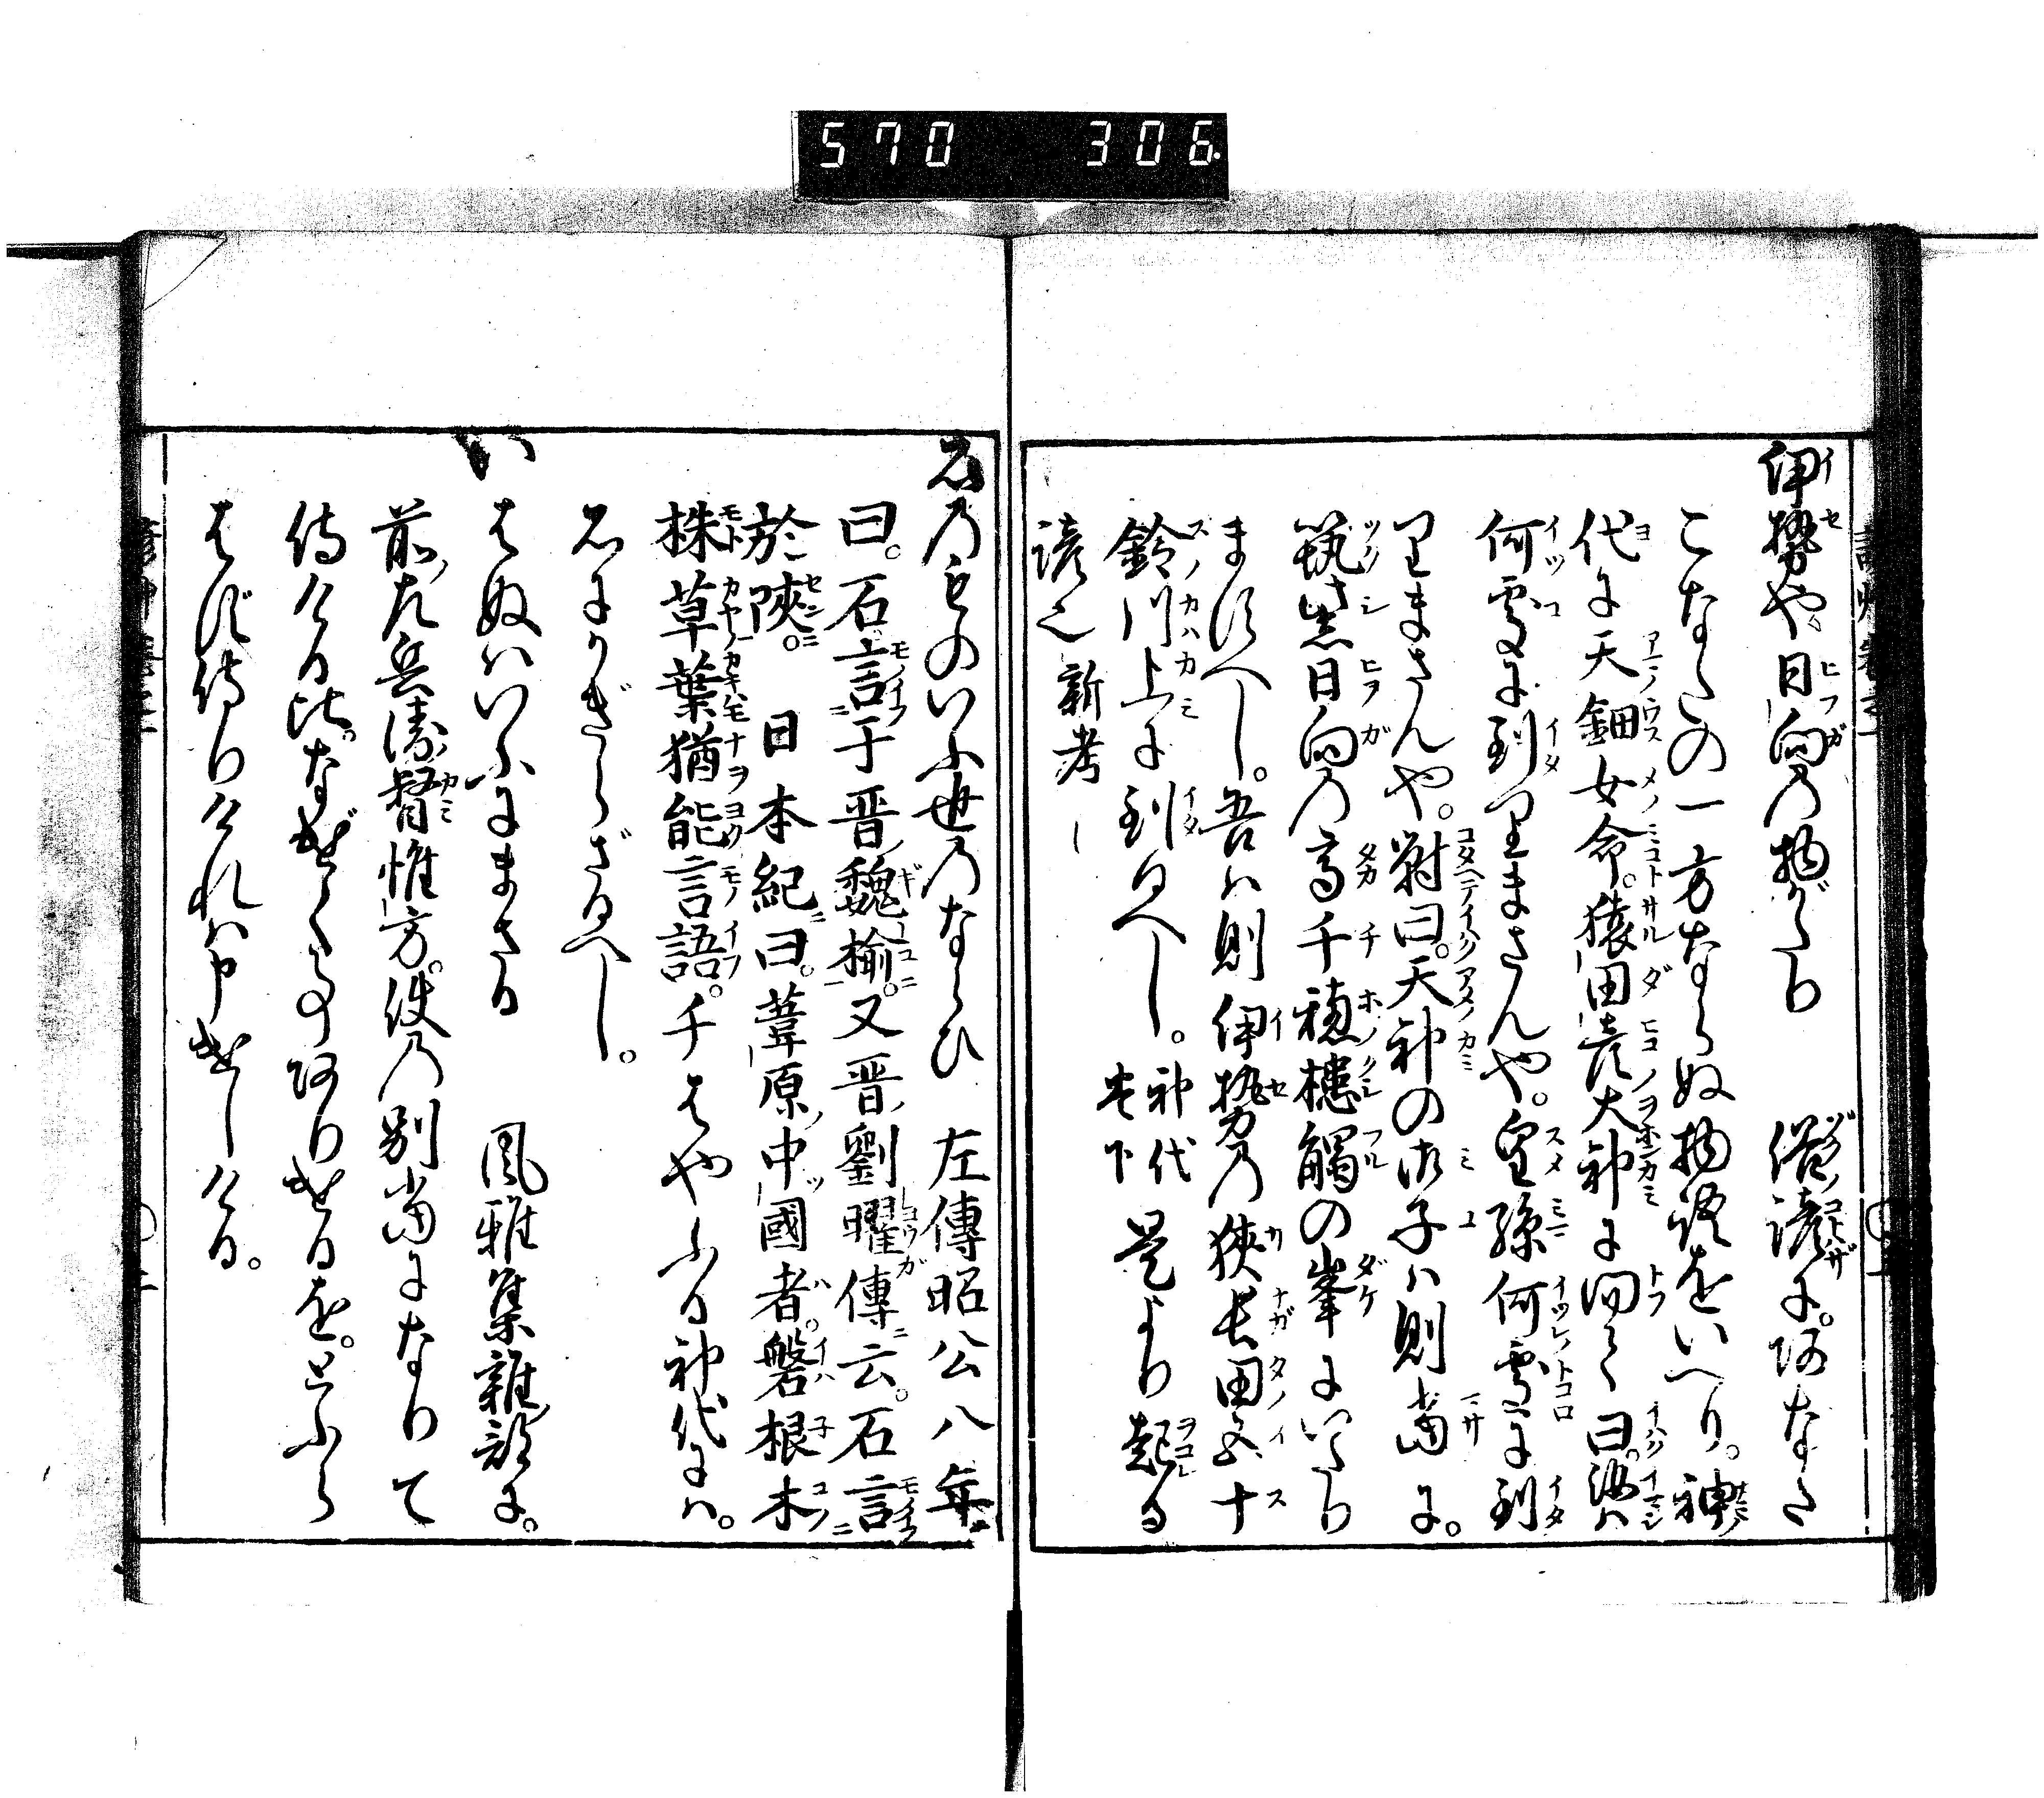 570 306
伊勢や日向の物がたり 俗諺に。あなた
こなたの一方ならぬ物語をいへり。神
代に天鈿女命。猿田彦大神に問て曰。汝ハ
何處に到りまさんや。皇孫何處に到
りまさんや。對曰。天神の御子ハ則當に。
筑紫日向の高千穂槵觸の峯にいたり
ますべし。吾ハ則伊勢の狭長田五十
鈴川上に到るべし。神代巻下 是より起る
諺也 新考
石のものいふ世のならひ 左傳昭公八年
曰。石言于晋魏榆。又晋劉曜傳云。石言
於陝。 日本紀曰。葦原中國者。磐根木
株草葉猶能言語。千はやふる神代にハ。
石にかぎらざるべし。
いはぬハいふにまさる 風雅集雑部に。
前左兵衛督惟方。使の別當になりて
侍ける比。なげく事ありけるを。とふら
はず侍りけれハ申けしける。